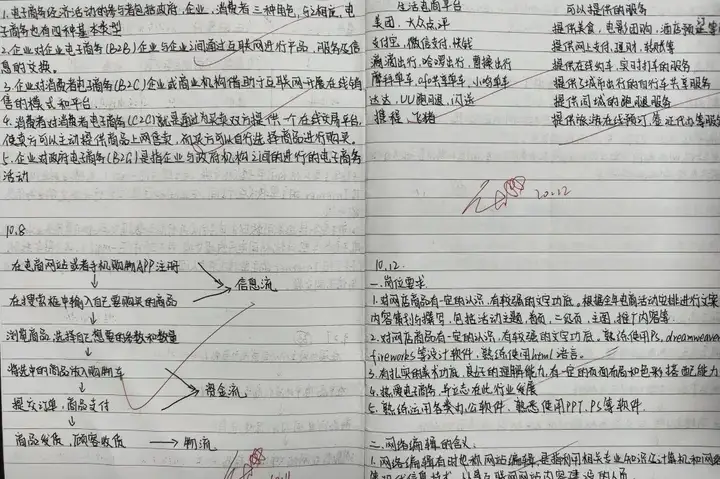 1.电子商务经济活动的参与者包括政府,企业,消费者三种角色,与之相应,电
子商务也有四种基本类型
2.企业对企业电子商务(B2B)企业与企业之间通过互联网进行产品,服务及信
息的交换。
3.企业对消费者电子商务(B2C)企业或商业机构借助于互联网开展在线销
售的模式和平台
4.消费者对消费者电子商务(C2C)就是通过为买卖双方提供一个在线交易平台,
使卖方可以主动提供商品上网售卖,而买方可以自行选择商品进行购买。
5.企业对政府电子商务(B2G)是指企业与政府机构之间的进行的电子商务
活动
10.8
在电商网站或者手机购物APP注册
信息流
在搜索框中输入自己要购买的商品
浏览商品,选择自己想要的参数和数量
将选中的商品放入购物车
资金流
提交订单,商品支付
商品发货,顾客收货 物流
生活电商平台 可以提供的服务
美团,大众点评 提供美食,电影团购,酒店预定等
支付宝,微信支付,快钱 提供网上支付,理财,转账等
滴滴出行,哈啰出行,曹操出行 提供在线约车,实时打车的服务
摩拜单车,ofo共享单车,小鸣单车 提供了城市出行的自行车共享服务
达达,UU跑腿,闪送 提供同城的跑腿服务
携程,飞猪 提供旅游在线预订,签证代办等服务
10.12
10.12.
一.岗位要求
1.对网店商品有一定的认识,有较强的文字功底。根据全年电商活动安排进行文案
内容策划与撰写,包括活动主题,首页,二级页,主图,推广内容等
2.对网店商品有一定的认识,有较强的文字功底。熟练使用Ps,dreamweaver
fireworks等设计软件,熟练使用html语言。
3.有扎实的美术功底,良好的理解能力,有一定的页面布局和色彩搭配能力
4.热爱电子商务,并立志在此行业发展
5.熟练运用各类办公软件,熟悉使用PPT,PS等软件.
二.网络编辑的含义.
1.网络编辑有时也称网站编辑,是指利用相关专业知识及计算机和网络
等现代信息技术,从事互联网网站内容建设的人员